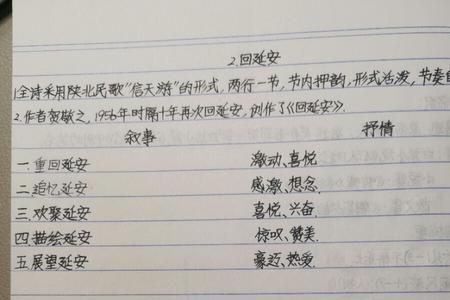 2.回延安
1.全诗采用陕北民歌"信天游"的形式,两行一节,节内押韵,形式活泼,节奏自
2.作者贺敬之,1956年时隔十年再次回延安,创作了《回延安》.
叙事 抒情
一.重回延安 激动、喜悦
二.追忆延安 感激、想念.
三.欢聚延安 喜悦、兴奋.
四.描绘延安 惊叹、赞美.
五.展望延安 豪迈、热爱.